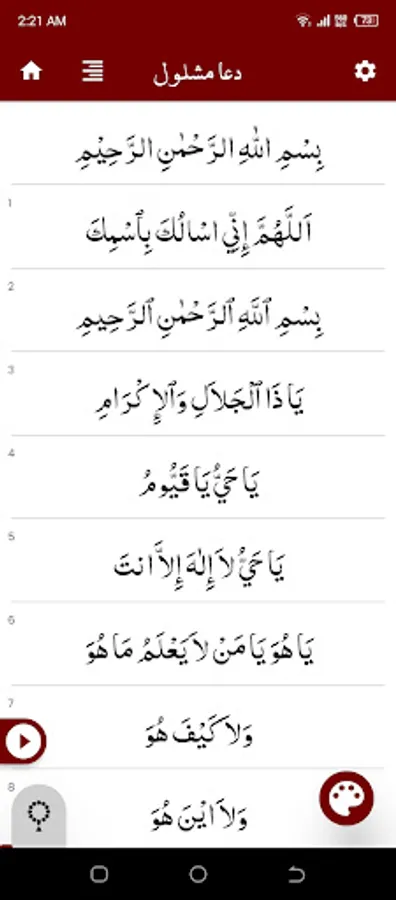 2:21 AM 73
دعا مشلول
بِسْمِ اللهِ الرَّحْمٰنِ الرَّحِيْمِ
1
اَللَّهُمَّ إِنِّي اسْالُكَ بِٱسْمِكَ
2
بِسْمِ ٱللَّهِ ٱلرَّحْمٰنِ ٱلرَّحِيمِ
3
يَا ذَا ٱلْجَلاَلِ وَٱلإِكْرَامِ
4
يَا حَيُّ يَا قَيُّومُ
5
يَا حَيُّ لاَ إِلٰهَ إِلاَّ انتَ
6
يَا هُوَ يَا مَنْ لاَ يَعْلَمُ مَا هُوَ
7
وَلاَ كَيْفَ هُوَ
8
وَلاَ ايْنَ هُوَ